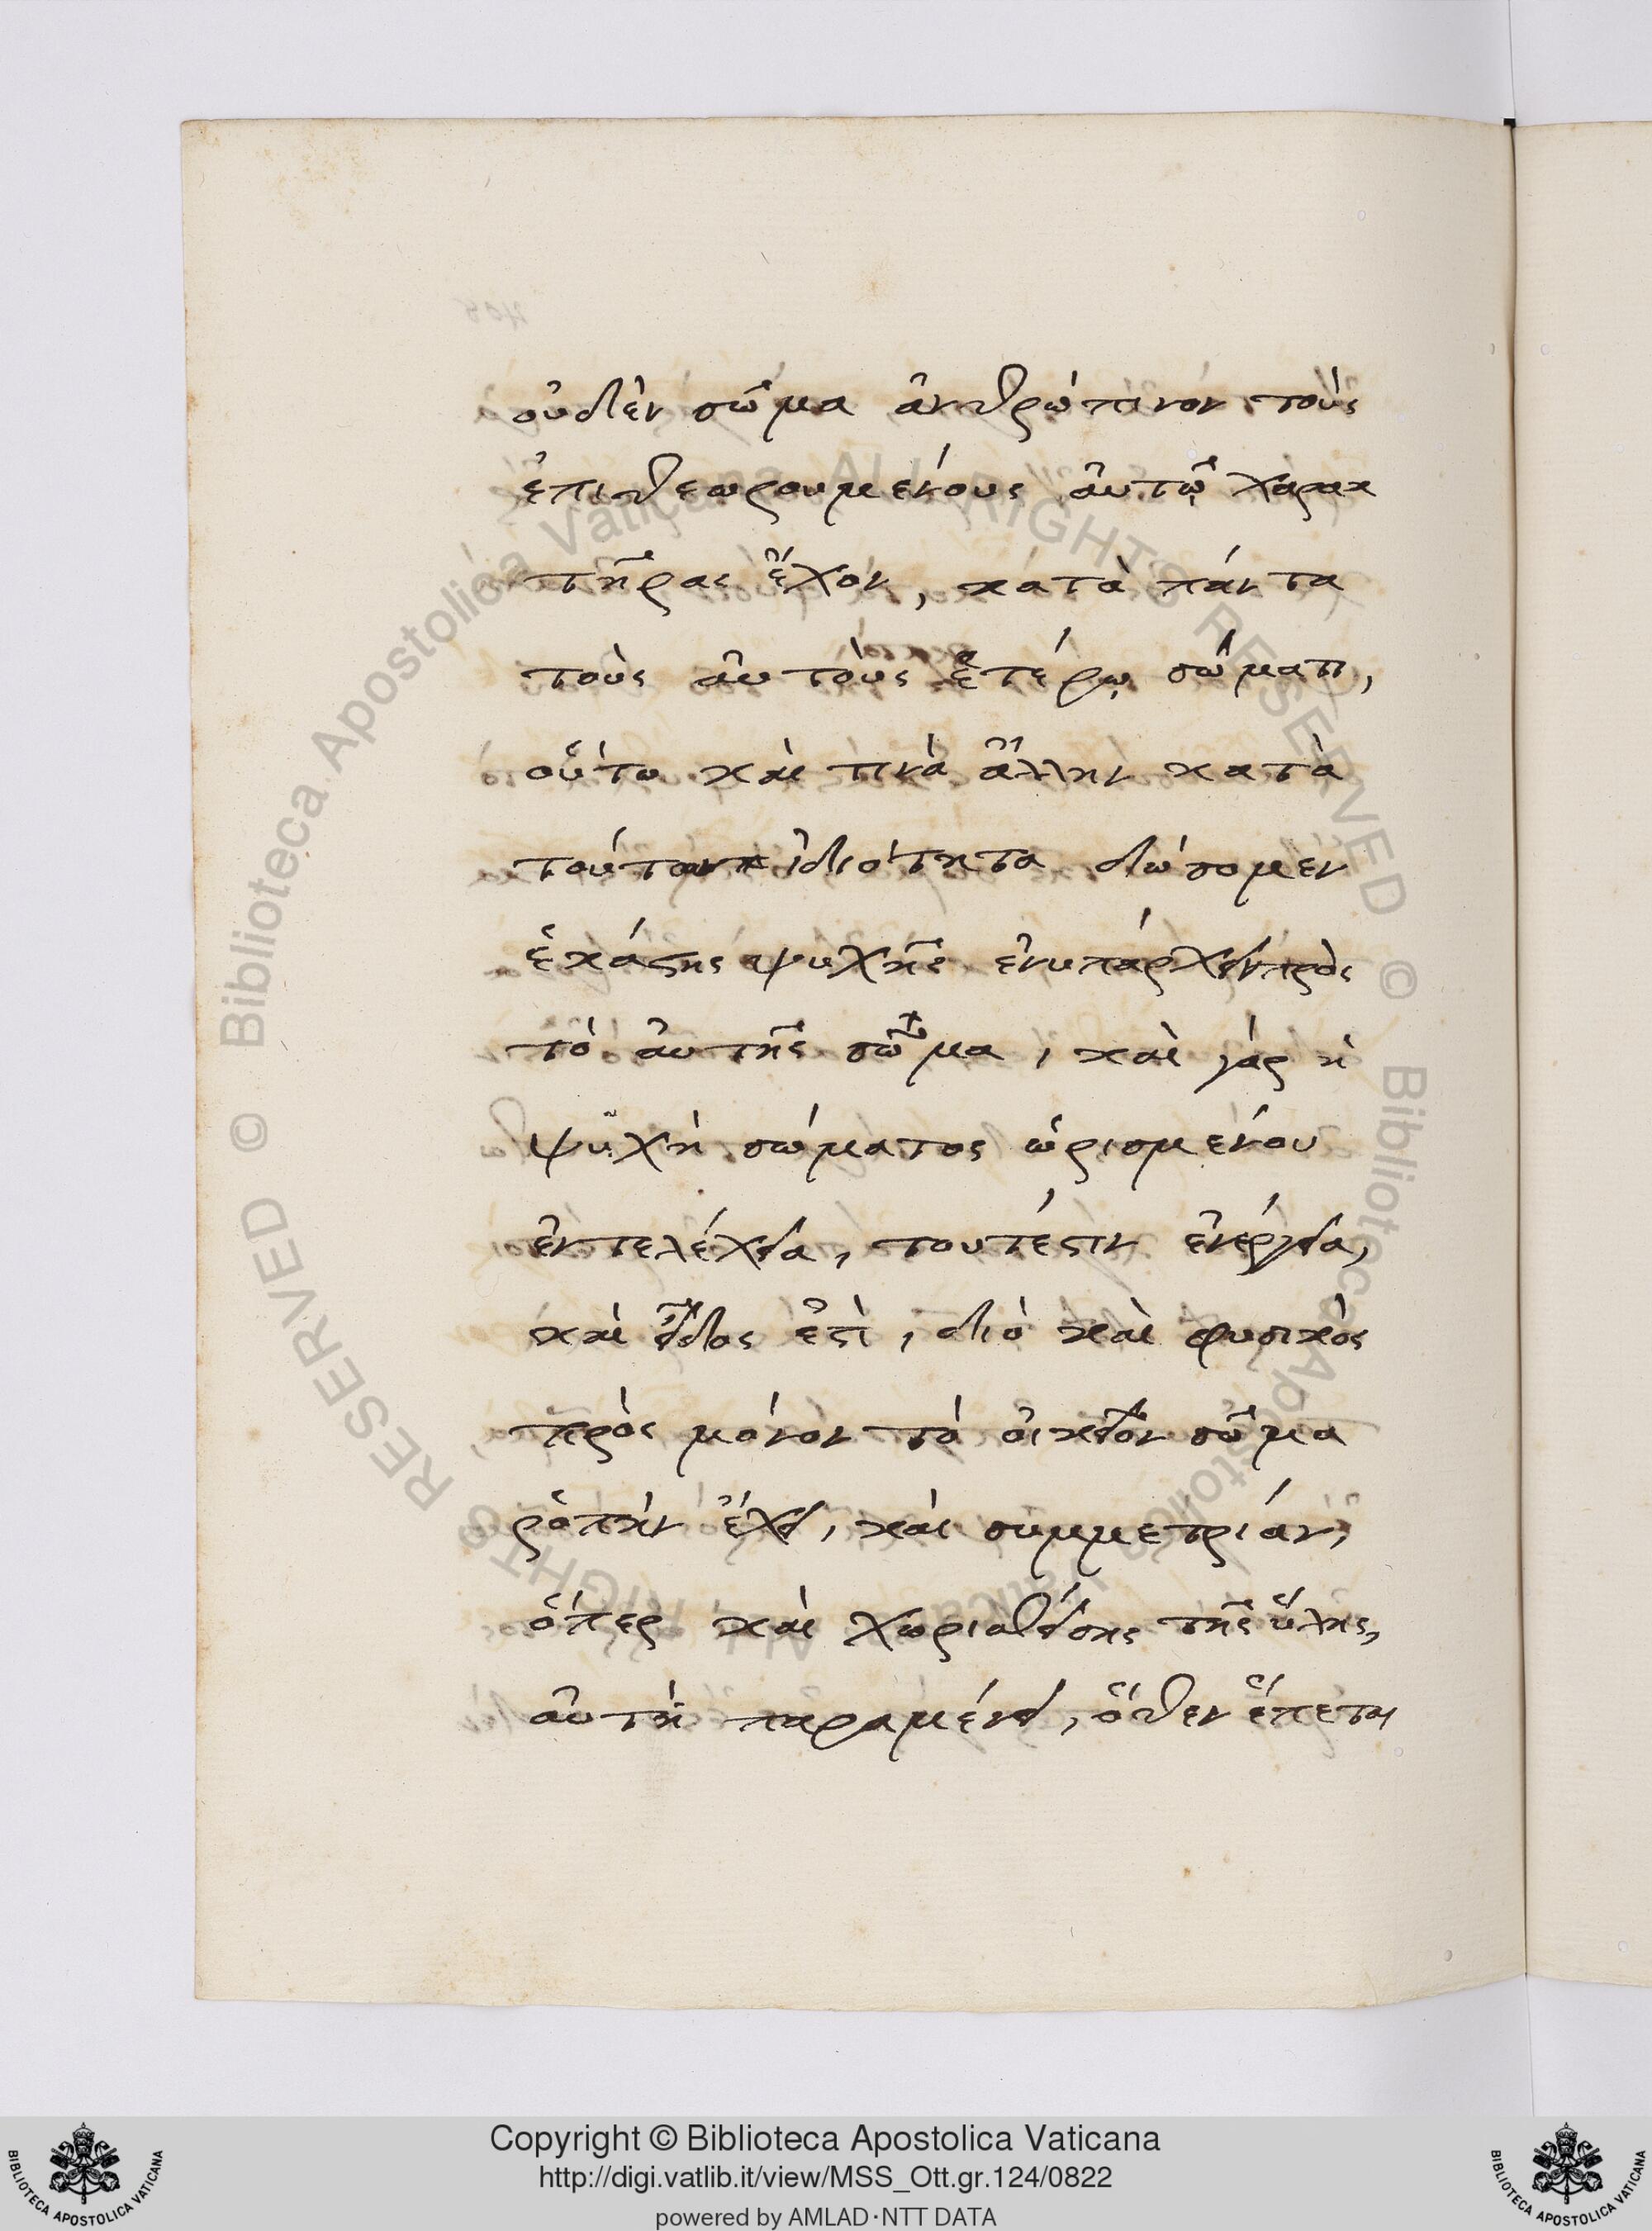 οὐδὲν σῶμα ἀνθρώπινον τοὺς
ἐπιθεωρουμένους αὐτῷ χαρακ
τῆρας ἔχον, κατὰ πάντα
τοὺς αὐτοὺς ἑτέρῳ σώματι,
οὕτω καὶ τινὰ ἄλλην κατὰ
τούτων ἰδιότητα δώσομεν
ἑκάστης ψυχῆς ἐνυπάρχειν πρὸς
τὸ αὐτῆς σῶμα, καὶ γὰρ ἡ
ψυχὴ σώματος ὡρισμένου
ἐντελέχεια, τουτέστιν ἐνέργεια,
καὶ εἶδος ἐστὶ, διὸ καὶ φυσικὸς
πρὸς μόνον τὸ οἰκεῖον σῶμα
ῥοπὴν ἔχει, καὶ συμμετρίαν,
ὅπερ καὶ χωρισθείσης τῆς ὕλης,
αὐτὴ παραμένει, ὅθεν ἕπεται
Copyright © Biblioteca Apostolica Vaticana
http://digi.vatlib.it/view/MSS_Ott.gr.124/0822
powered by AMLAD·NTT DATA
BIBLIOTECA APOSTOLICA VATICANA
BIBLIOTECA APOSTOLICA VATICANA
© Biblioteca Apostolica Vaticana ALL RIGHTS RESERVED
© Biblioteca Apostolica Vaticana ALL RIGHTS RESERVED